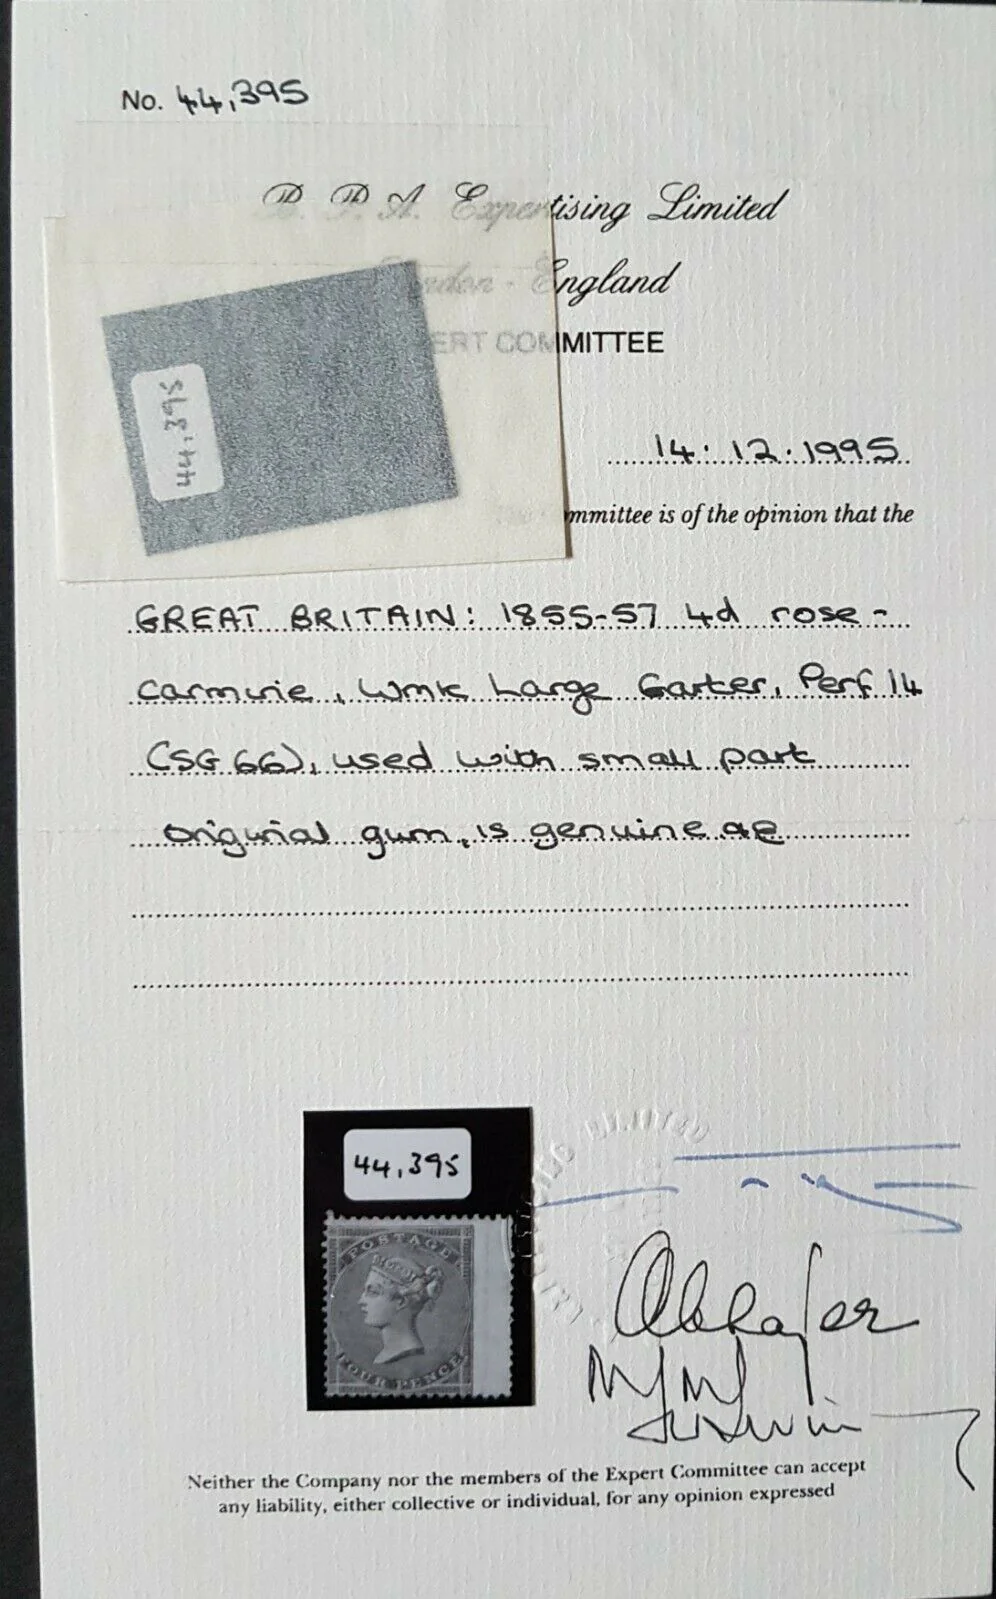 No. 44,395
B. P. A. Expertising Limited
London - England
EXPERT COMMITTEE
44,395
14.12.1995
The Committee is of the opinion that the
GREAT BRITAIN: 1855-57 4d rose-
carmine, Wmk Large Garter, Perf 14
(SG 66), used with small part
original gum, is genuine
44,395
POSTAGE
FOUR PENCE
Neither the Company nor the members of the Expert Committee can accept
any liability, either collective or individual, for any opinion expressed